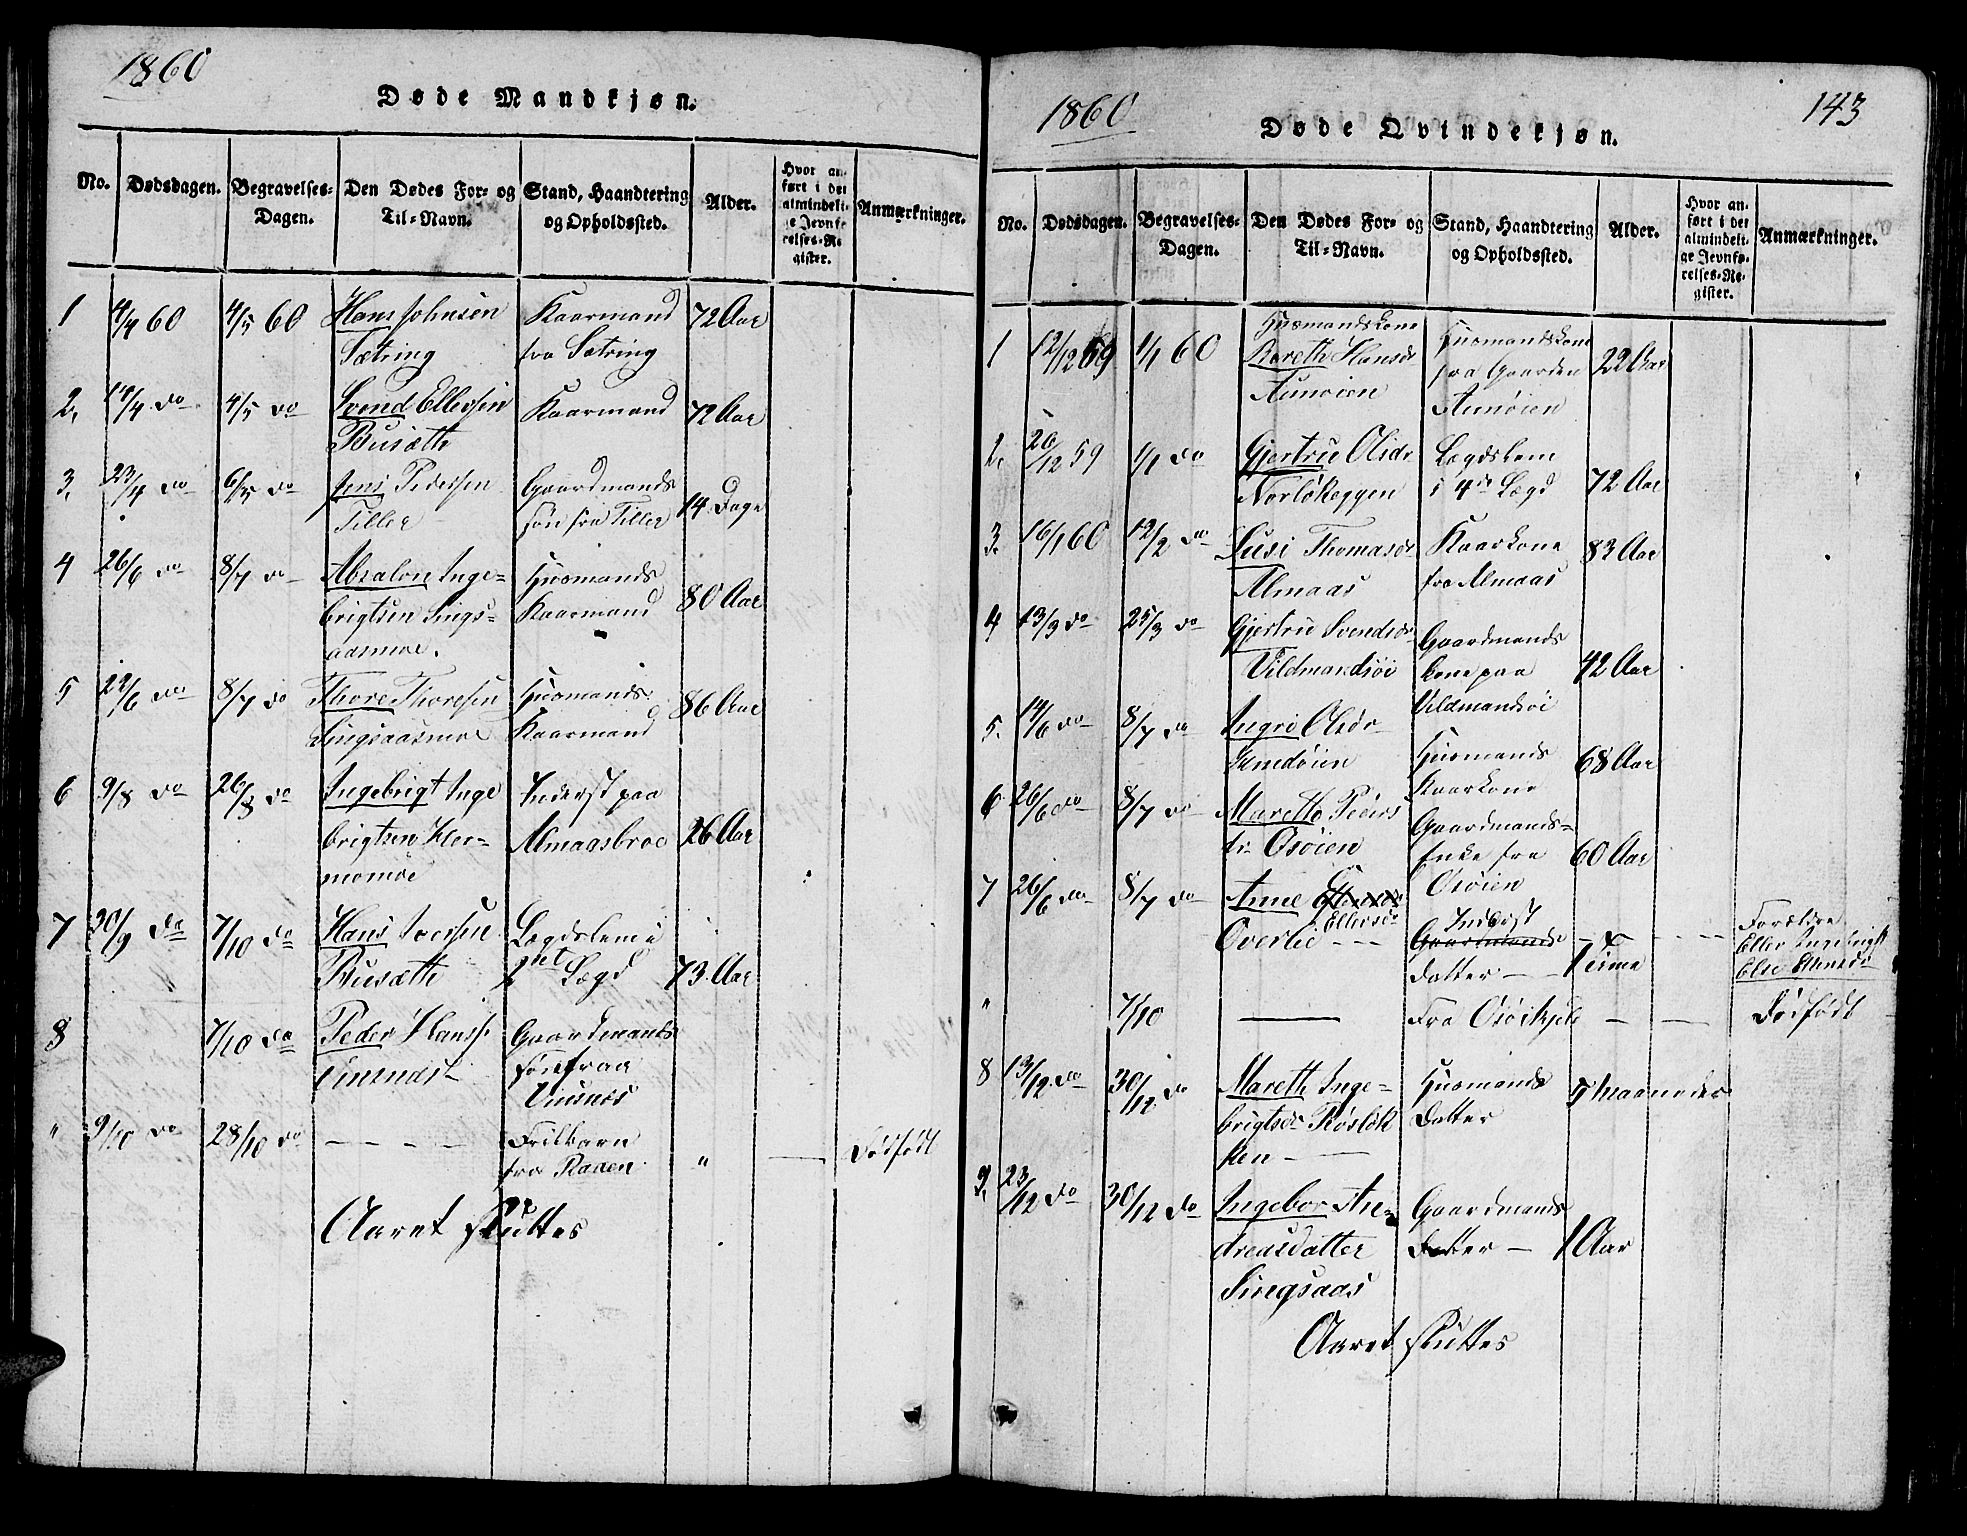 1860
Døde Mandkjøn.
No.
Dødsdagen.
Begravelses-
Dagen.
Den Dødes For- og
Til-Navn.
Stand, Haandtering
og Opholdssted.
Alder.
Hvor an-
ført i det
almindeli-
ge Jevnfø-
relses-Re-
gister.
Anmærkninger.
1 4/4 60 4/5 60 Hans Johnsen Kaarmand 72 Aar
Sætring fra Sætring
2. /4 do 4/5 do Svend Ellersen Kaarmand 72 Aar
Busæth
3. 23/4 do 6/5 do Jens Pedersen Gaardmands
Tiller søn fra Tiller 14 Dage
4 26/6 do 8/7 do Absalon Inge- Huusmands
brigtsen Sings- Kaarmand 80 Aar
aasmoe.
5 22/6 do 8/7 do Thore Thoresen Huusmands 86 Aar
Singsaasmoe Kaarmand
6 9/8 do 26/8 do Ingebrigt Inge Inderst paa
brigtsen Her- Almaasbroe 26 Aar
momoe
7 30/9 do 7/10 do Hans Iversen Lægdslem i
Busæth Lægd 73 Aar
8 7/10 do Peder Hanss. Gaardmands
søn fraa
Vinsnes
" 9/10 do 28/10 do — — — — Frilbarn
fra Raaen " — Dødfødt
Aaret sluttes
1860
143
Døde Qvindekjøn.
No.
Dødsdagen.
Begravelses-
Dagen.
Den Dødes For- og
Til-Navn.
Stand, Haandtering
og Opholdssted.
Alder.
Hvor an-
ført i det
almindeli-
ge Jevnfø-
relses-Re-
gister.
Anmærkninger.
Huusmandskone Huusmandskone
1 12/12 59 1/1 60 Hansdr fra Gaarden 22 Aar
Aunøien Aunøien
2. 26/12 59 1/1 do Gjertrue Olsdr Lægdslem
Norløkeggen i 4de Lægd 72 Aar
3. 16/1 60 12/2 do Susi Thomasdr Kaarkone 83 Aar
Almaas fra Almaas
4 13/3 do 25/3 do Gjertrue Svendsdr Gaardmands
Vildmandsøi kone paa 42 Aar
Vildmandsøi
5. 14/6 do 8/7 do Ingri Olsdr Huusmands
68 Aar
Kaarkone
6 26/6 do 8/7 do Mareth Peders Gaardmands-
dr Osøien Enke fra 60 Aar
Osøien
7 26/6 do 8/7 do Anne
Ellersdr
Overlie — — Inderst
Gaardmands
Datter — 1 Time
Forældre
Eller Ingebrigts
Else Ellensdr
" 7/10 — Fra Osøikjeld — — Dødfødt
8 13/12 do 30/12 do Mareth Inge- Huusmands 5 Maaneder
brigtsdr Røsløk Datter
ken —
9. 23/12 do 30/12 do Ingebor An- Gaardmands
dreasdatter Datter — 1 Aar
Singsaas
Aaret sluttes